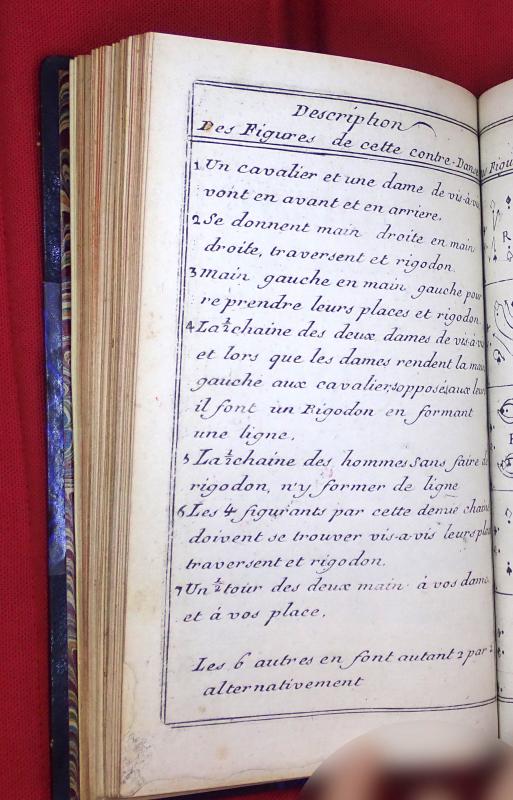 Description
Des Figures de cette contre-Danse
1 Un cavalier et une dame de vis-à-vis
vont en avant et en arriere.
2 Se donnent main droite en main
droite, traversent et rigodon.
3 Main gauche en main gauche pour
reprendre leurs places et rigodon
4 La ½ chaine des deux dames de vis-à-vis
et lors que les dames rendent la main
gauche aux cavaliers opposés aux leurs
il font un Rigodon en formant
une ligne.
5 La ½ chaine des hommes sans faire de
rigodon, n'y former de ligne
6 Les 4 figurants par cette demie chaine
doivent se trouver vis-a-vis leurs places
traversent et rigodon.
7 Un ½ tour des deux main á vos dames
et á vos place.
Les 6 autres en font autant 2 par 2
alternativement